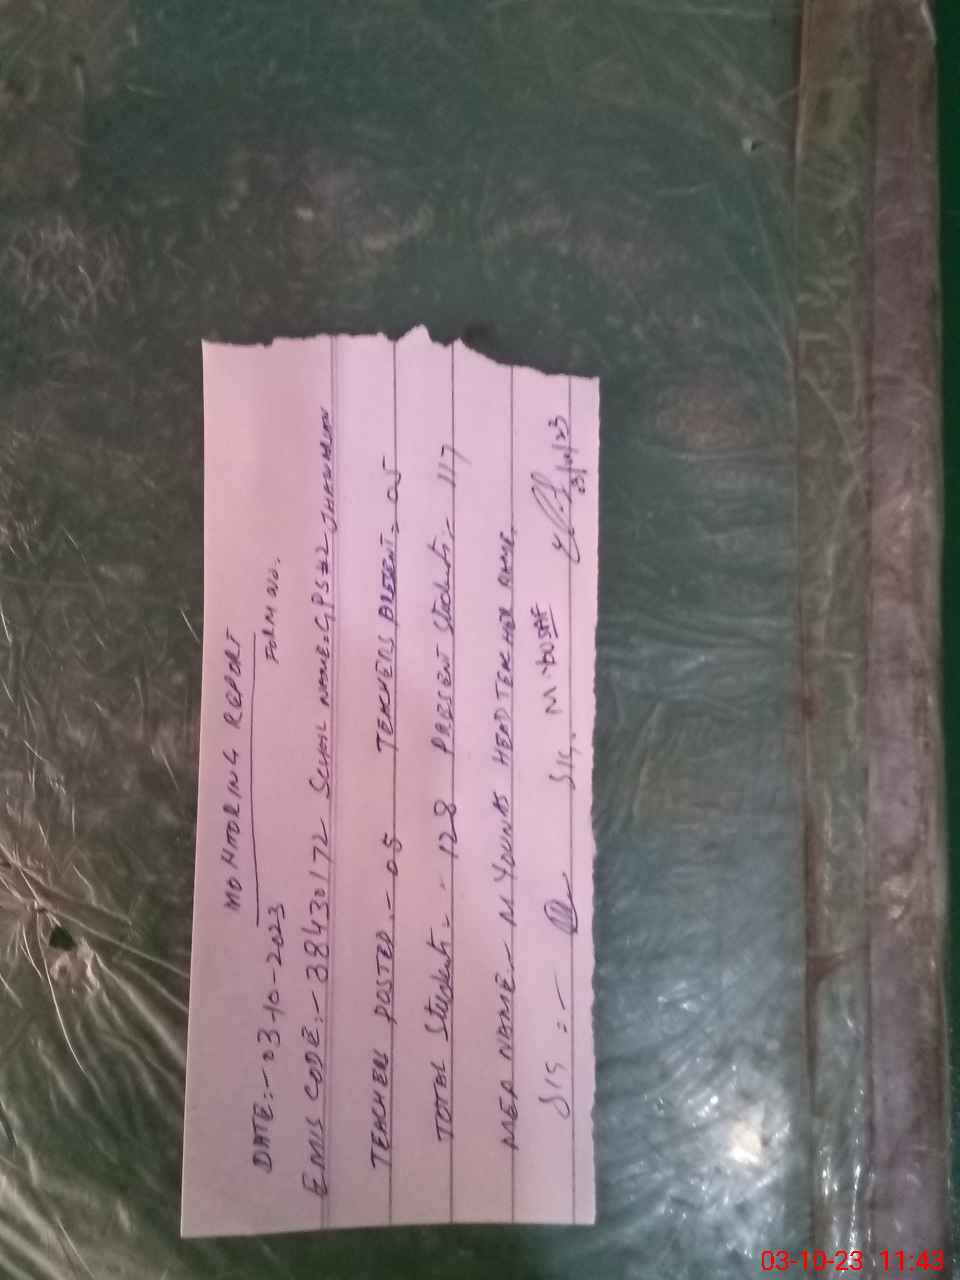 MONITORING REPORT
DATE:- 03-10-2023 FORM NO.
EMIS CODE:- 38430172 School NAME:- GPS #2
TEACHERS POSTED.- 05 TEACHERS PRESENT:- 05
TOTAL Students.- 128 PRESENT Students.- 117
MEA NAME.- M YOUNAS HEAD TEACHER NAME
SIG:- SIG. M. YOUSAF 03/10/23
03-10-23 11:43